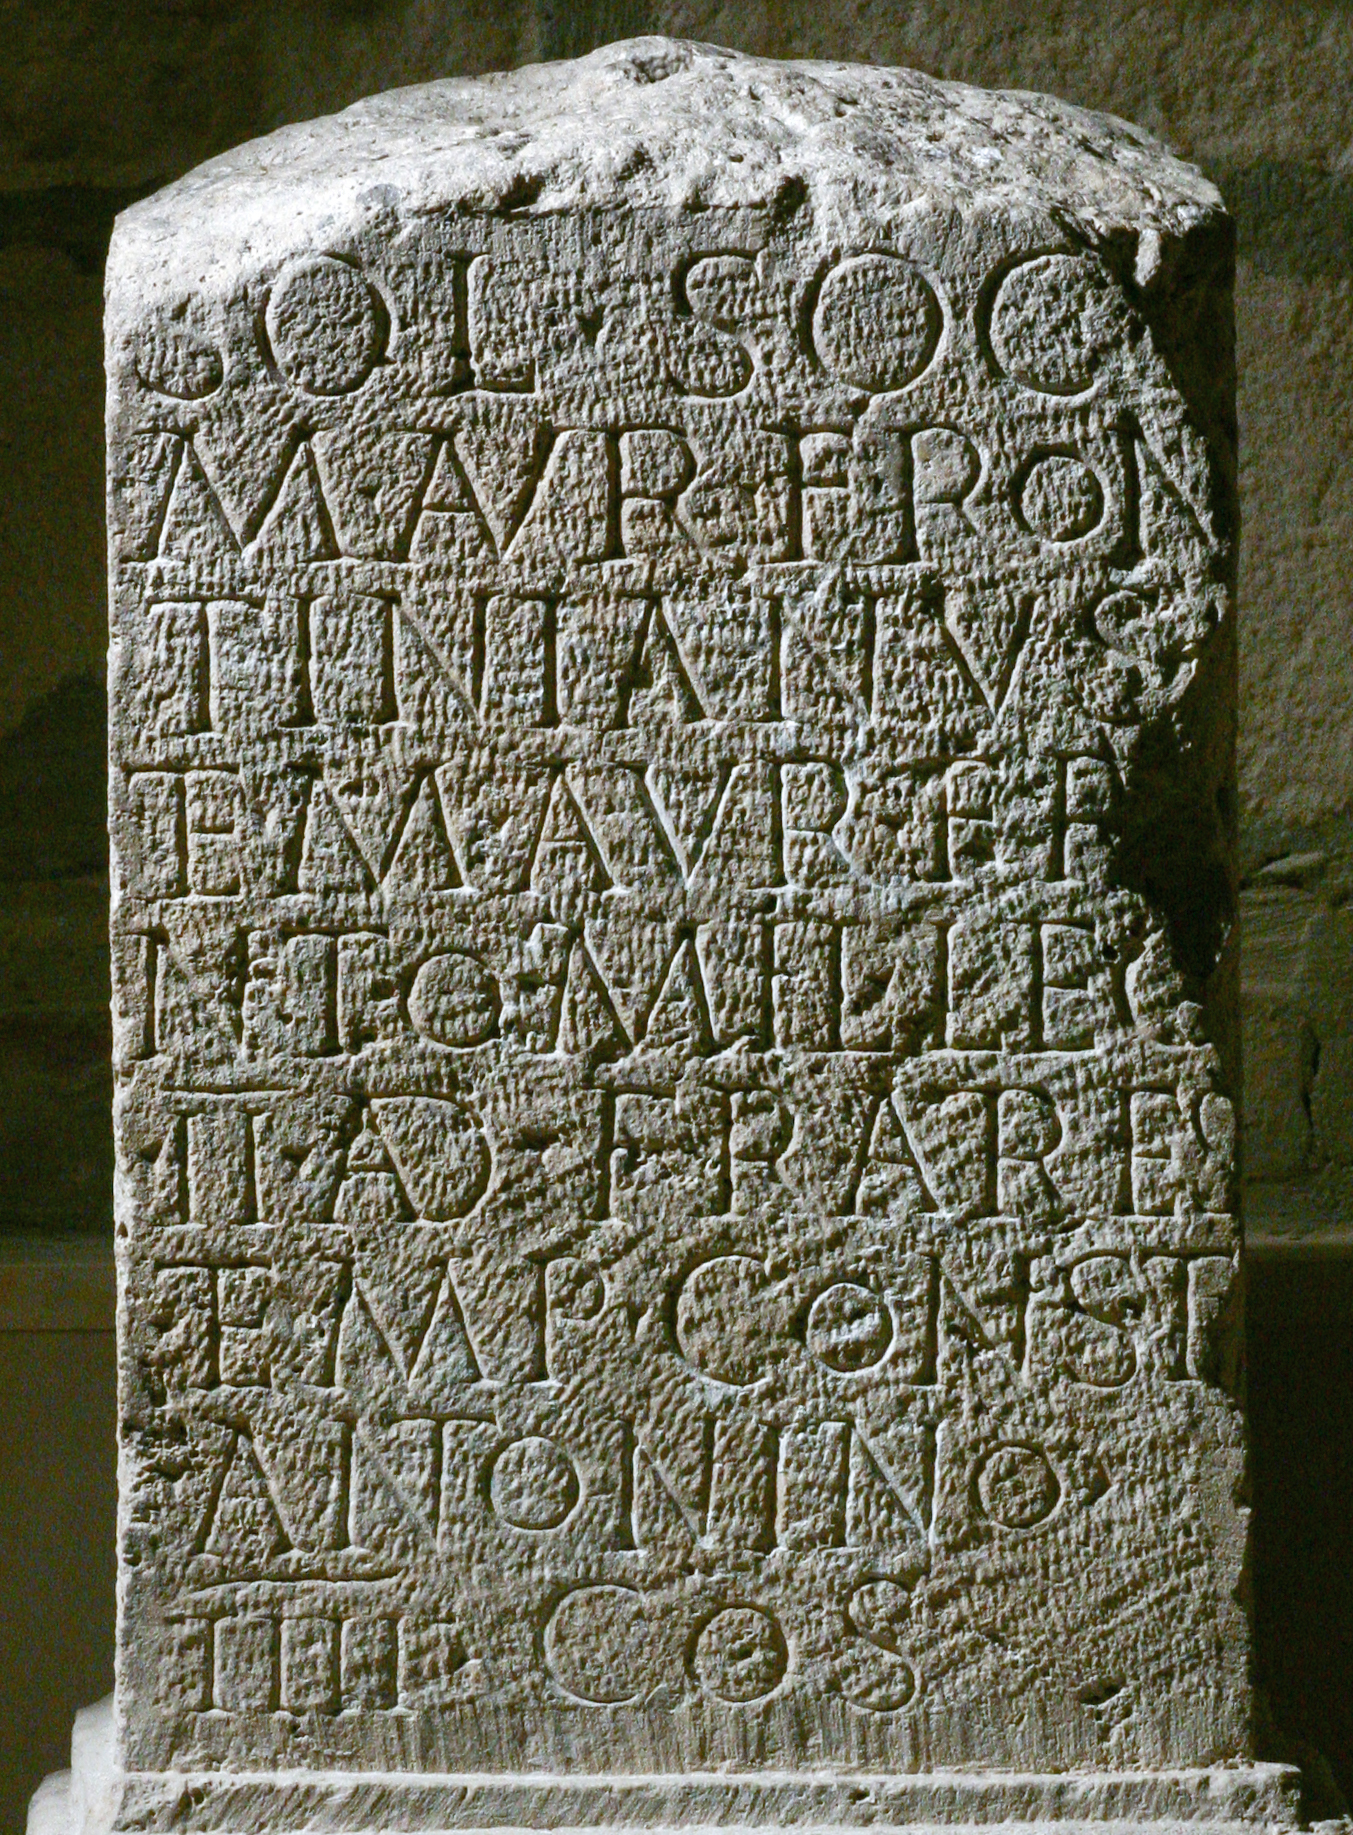 SOL · SOC
M AVR · FRON
TINIANVS
ET M AVR · FR
NTO · MIL · LEG
II AD · FRATRE
TEMP CONST
ANTONINO
IIII · COS